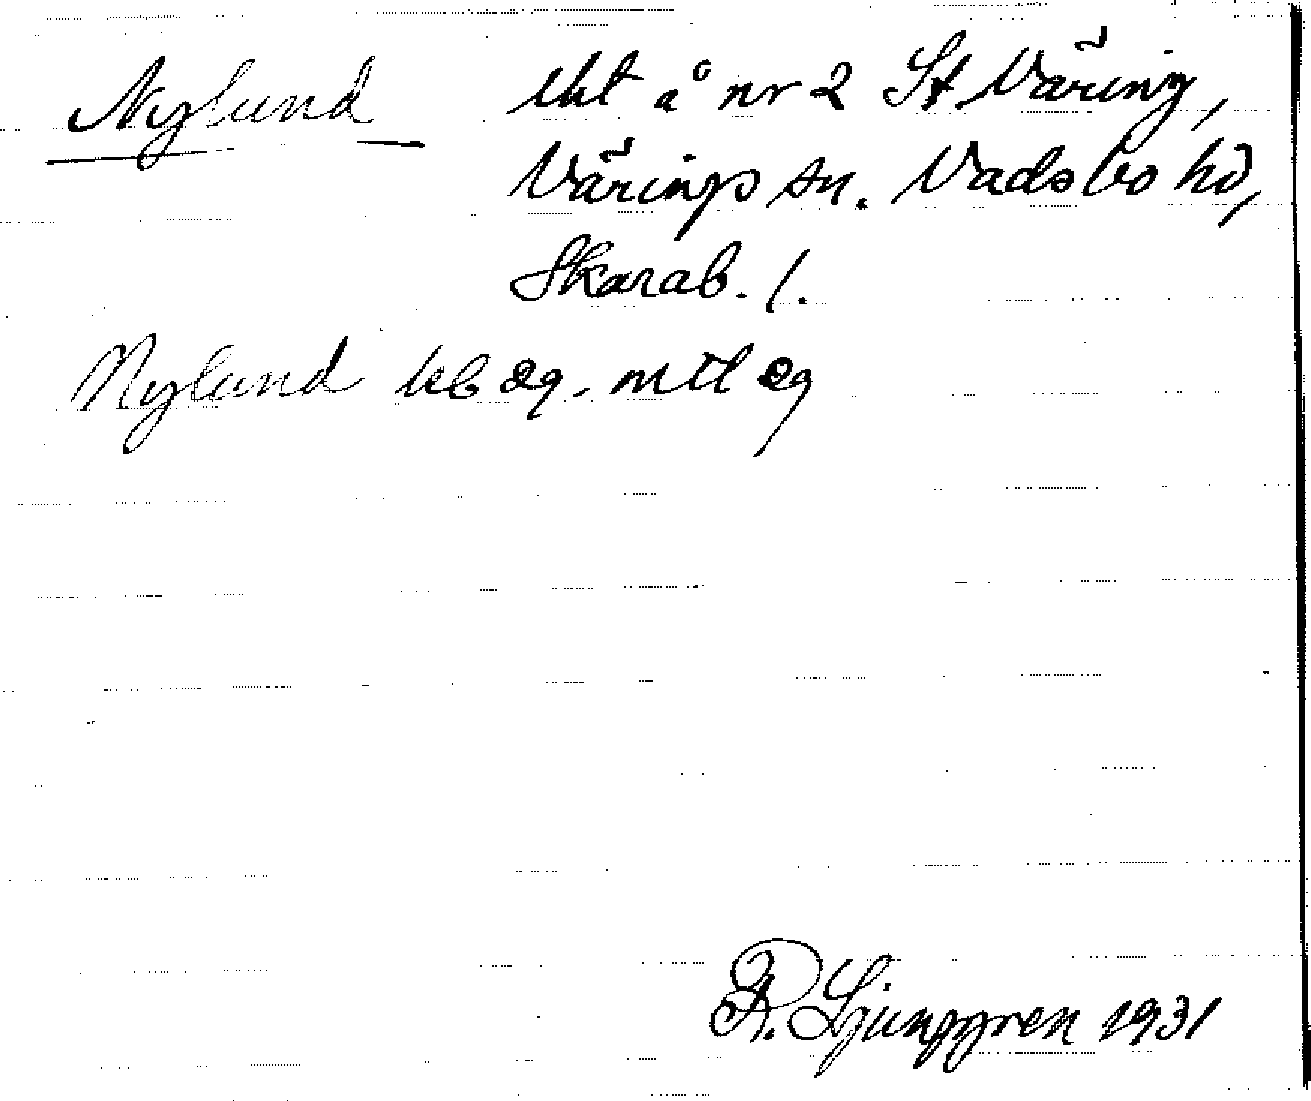 Nylund tht å nr 2 St. Väring,
Värings sn. Vadsbo hd,
Skarab. l.
Nylund kb äg. mtl äg
R. Ljunggren 1931